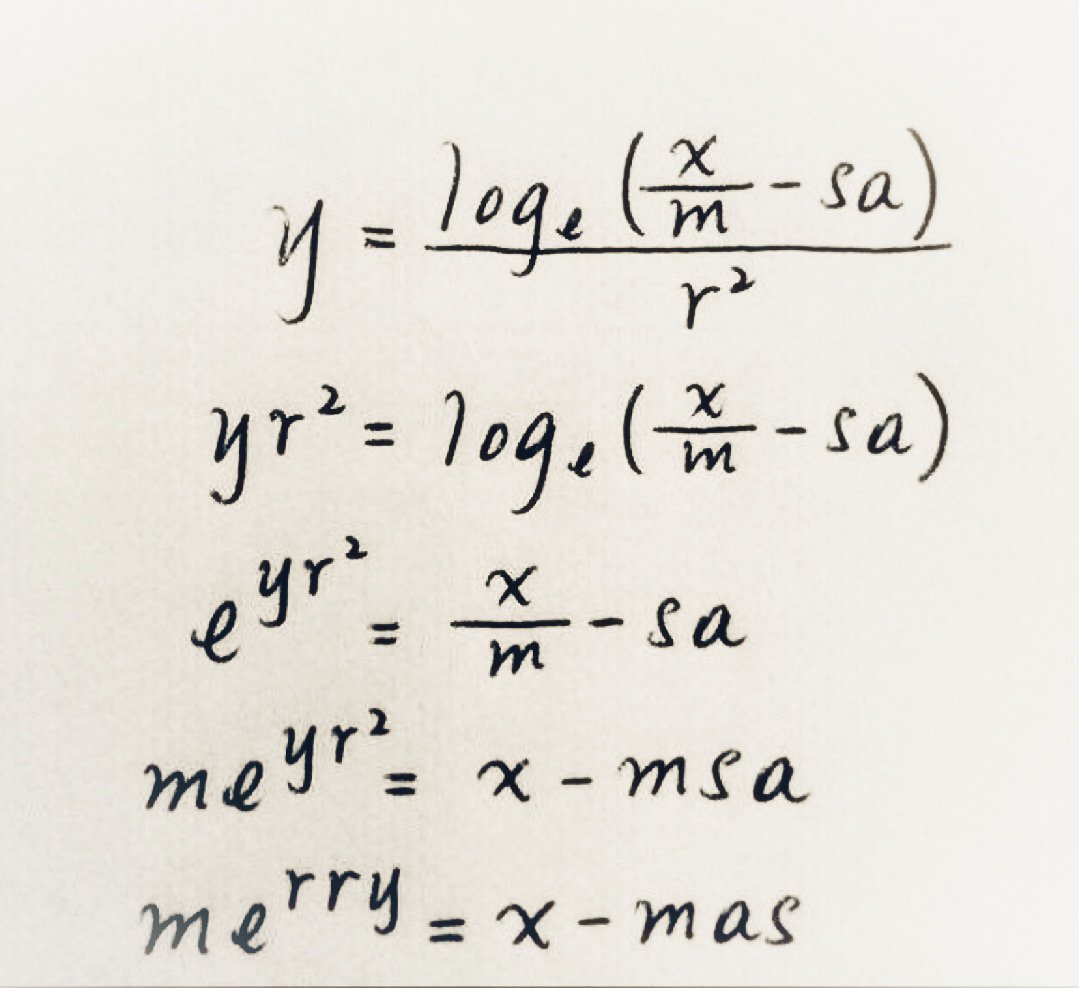 y = logₑ(x/m - sa) / r²
yr² = logₑ(x/m - sa)
e^(yr²) = x/m - sa
me^(yr²) = x - msa
me^(rry) = x - mas